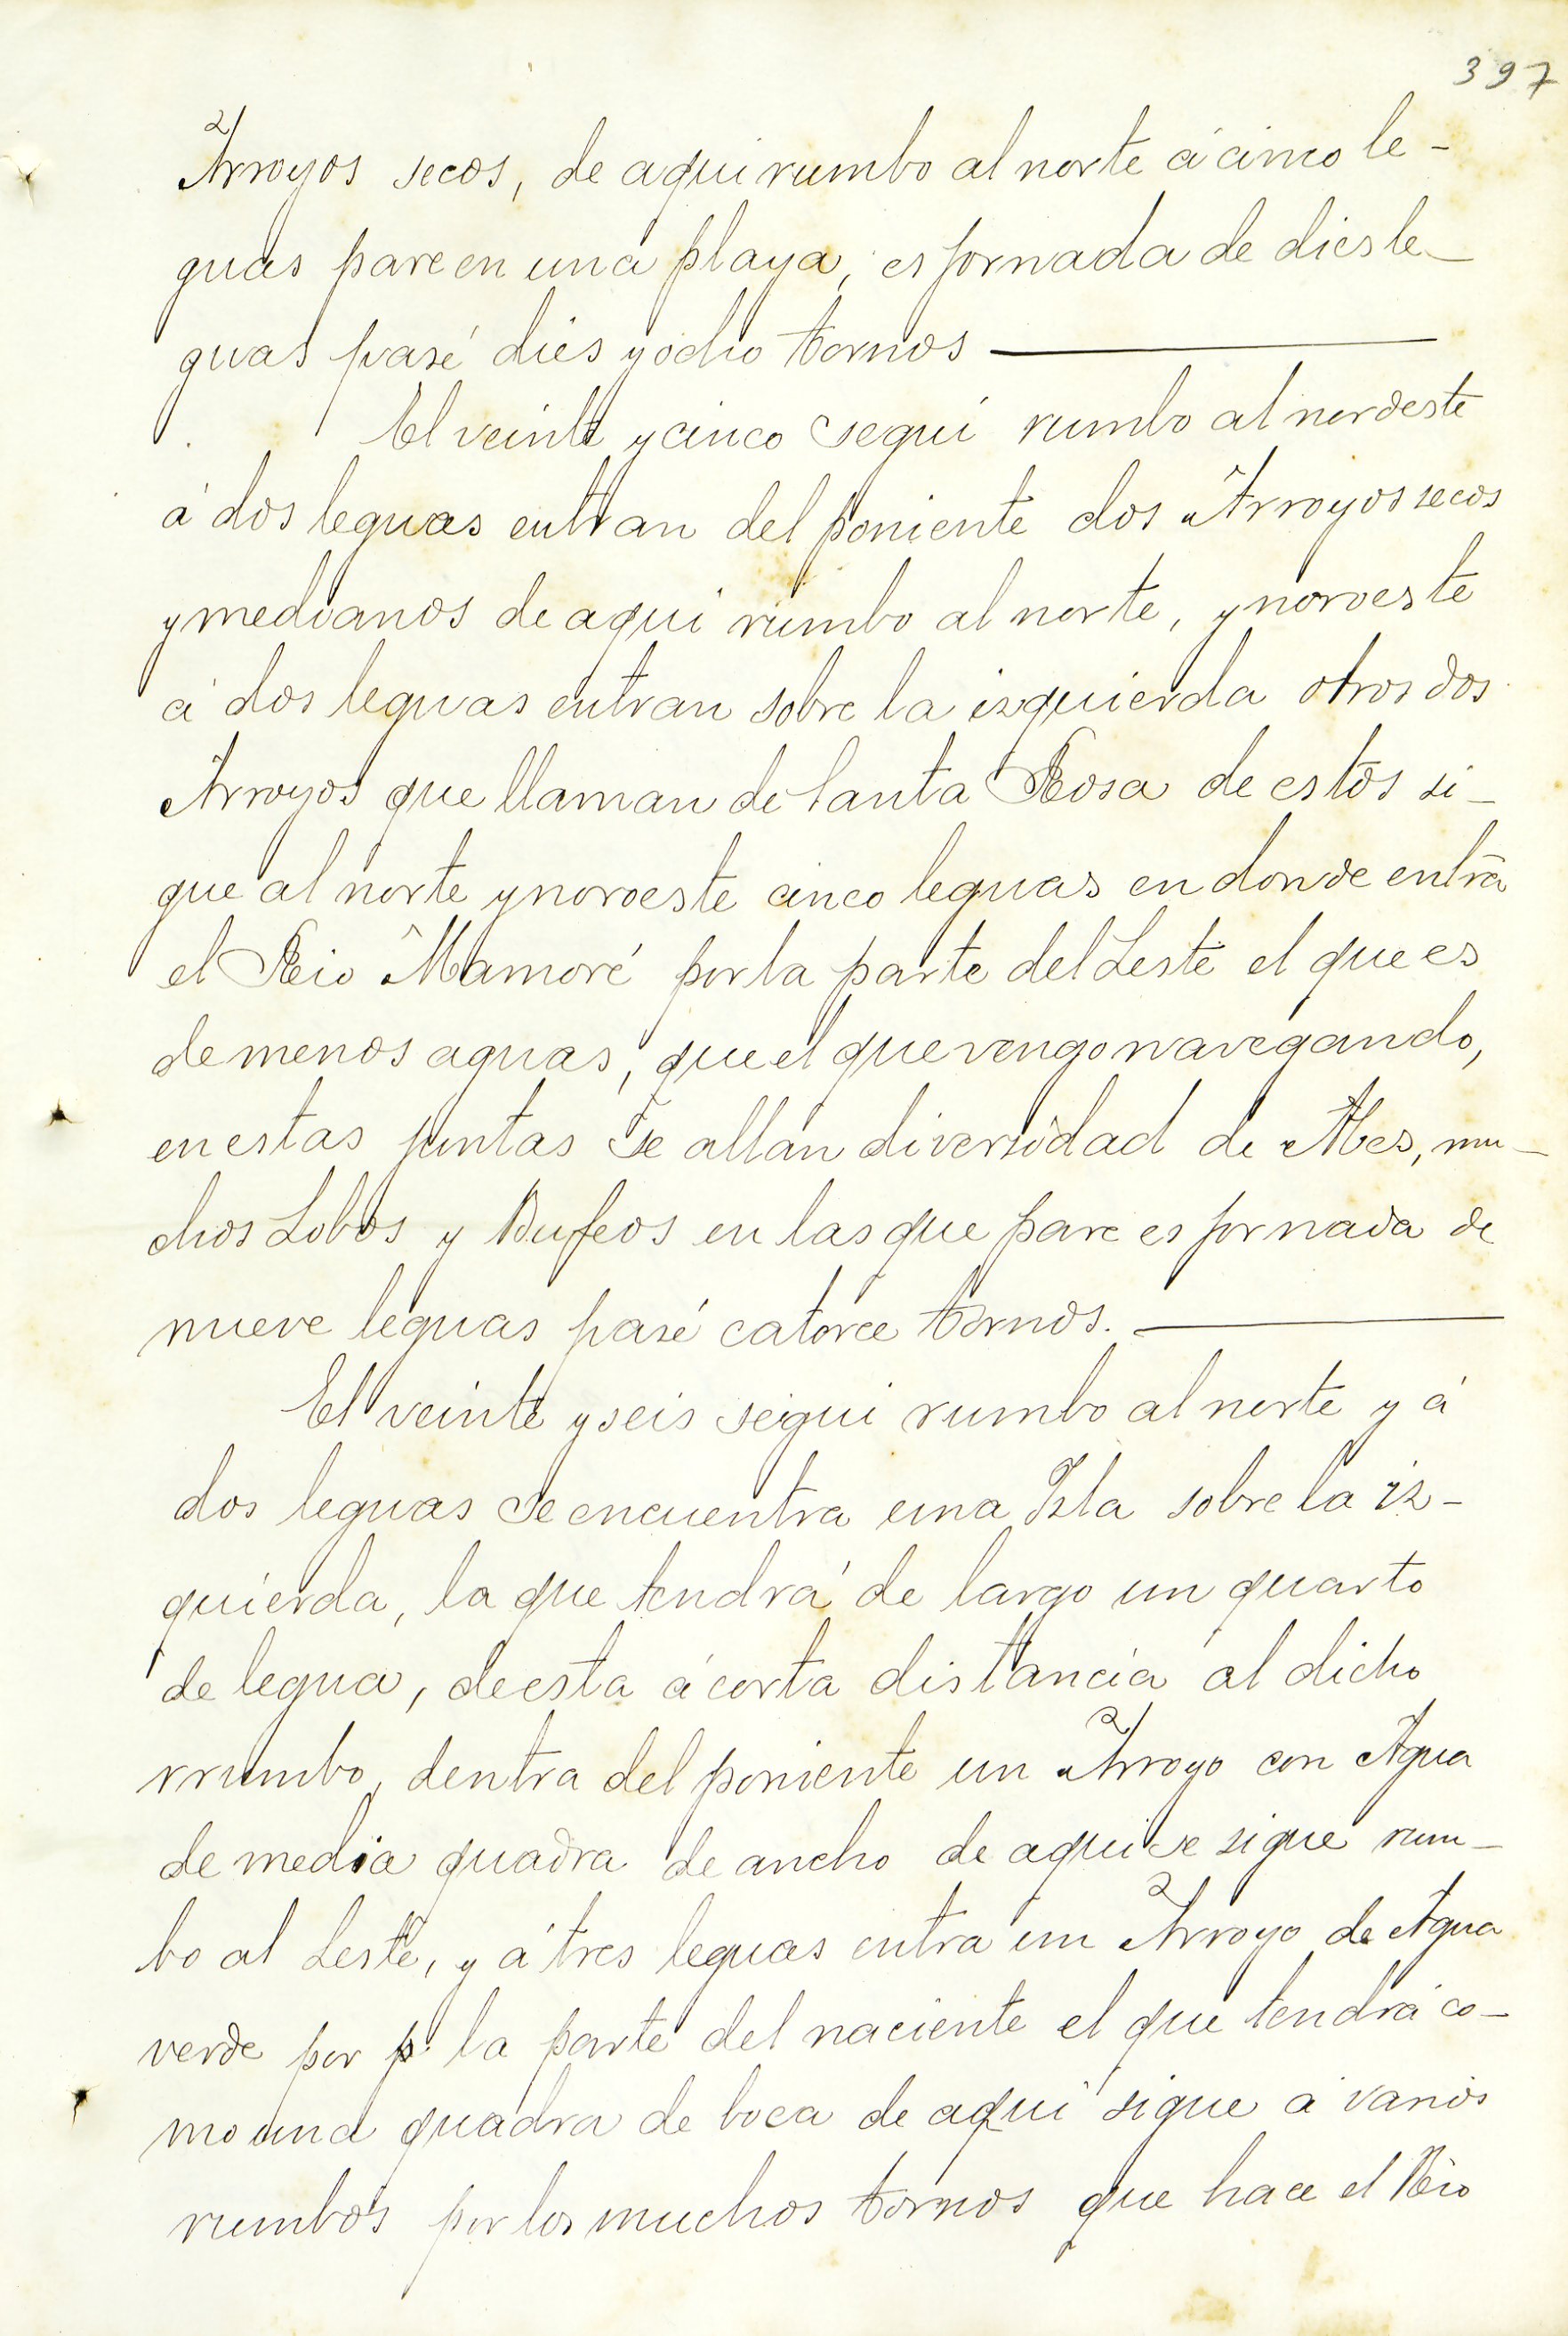 397
Arroyos secos, de aqui rumbo al norte á cinco le-
guas pare en una playa, es jornada de dies le-
guas pasé dies y ocho tornos
El veinte y cinco segui rumbo al nordeste
á dos leguas entran del poniente dos Arroyos secos
y medianos de aqui rumbo al norte, y noroeste
á dos leguas entran sobre la izquierda otros dos
Arroyos que llaman de Santa Rosa de estos si-
gue al norte y noroeste cinco leguas en donde entra
el Rio Mamoré por la parte del Leste el que es
de menos aguas, que el que vengo navegando,
en estas juntas se allan diversidad de Abes, mu-
chos Lobos y Bufeos en las que pare es jornada de
nueve leguas pasé catorce tornos.
El veinte y seis segui rumbo al norte y á
dos leguas se encuentra una Isla sobre la iz-
quierda, la que tendrá de largo un quarto
de legua, de esta á corta distancia al dicho
rrumbo, dentra del poniente un Arroyo con Agua
de media quadra de ancho de aqui se sigue rum-
bo al Leste, y á tres leguas entra un Arroyo de Agua
verde por p. la parte del naciente el que tendrá co-
mo una quadra de boca de aqui sigue á varios
rumbos por los muchos tornos que hace el Rio